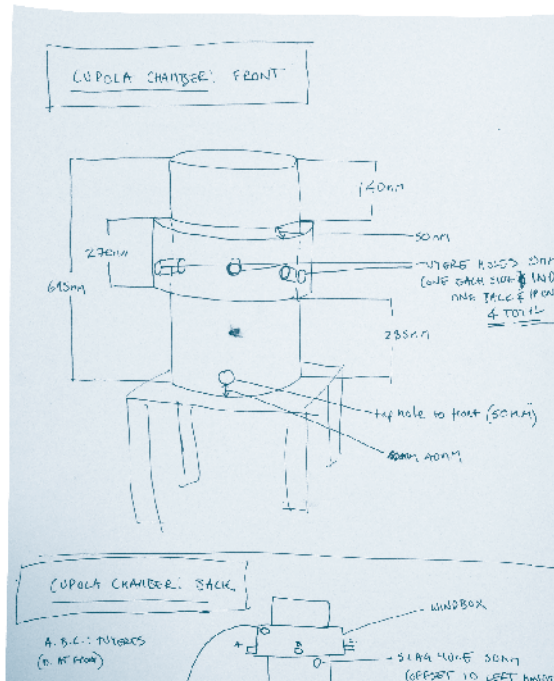 CUPOLA CHAMBER: FRONT
140MM
50MM
270MM
TUYERE HOLES
(ONE EACH SIDE & IND
ONE BACK & FRON
4 TOTAL
695MM
285MM
tap hole to front (50MM)
40MM
CUPOLA CHAMBER: BACK
WINDBOX
A.B.C.: TUYERES
(D. AT FRONT)
A
B
SLAG HOLE 50MM
(OFFSET TO LEFT